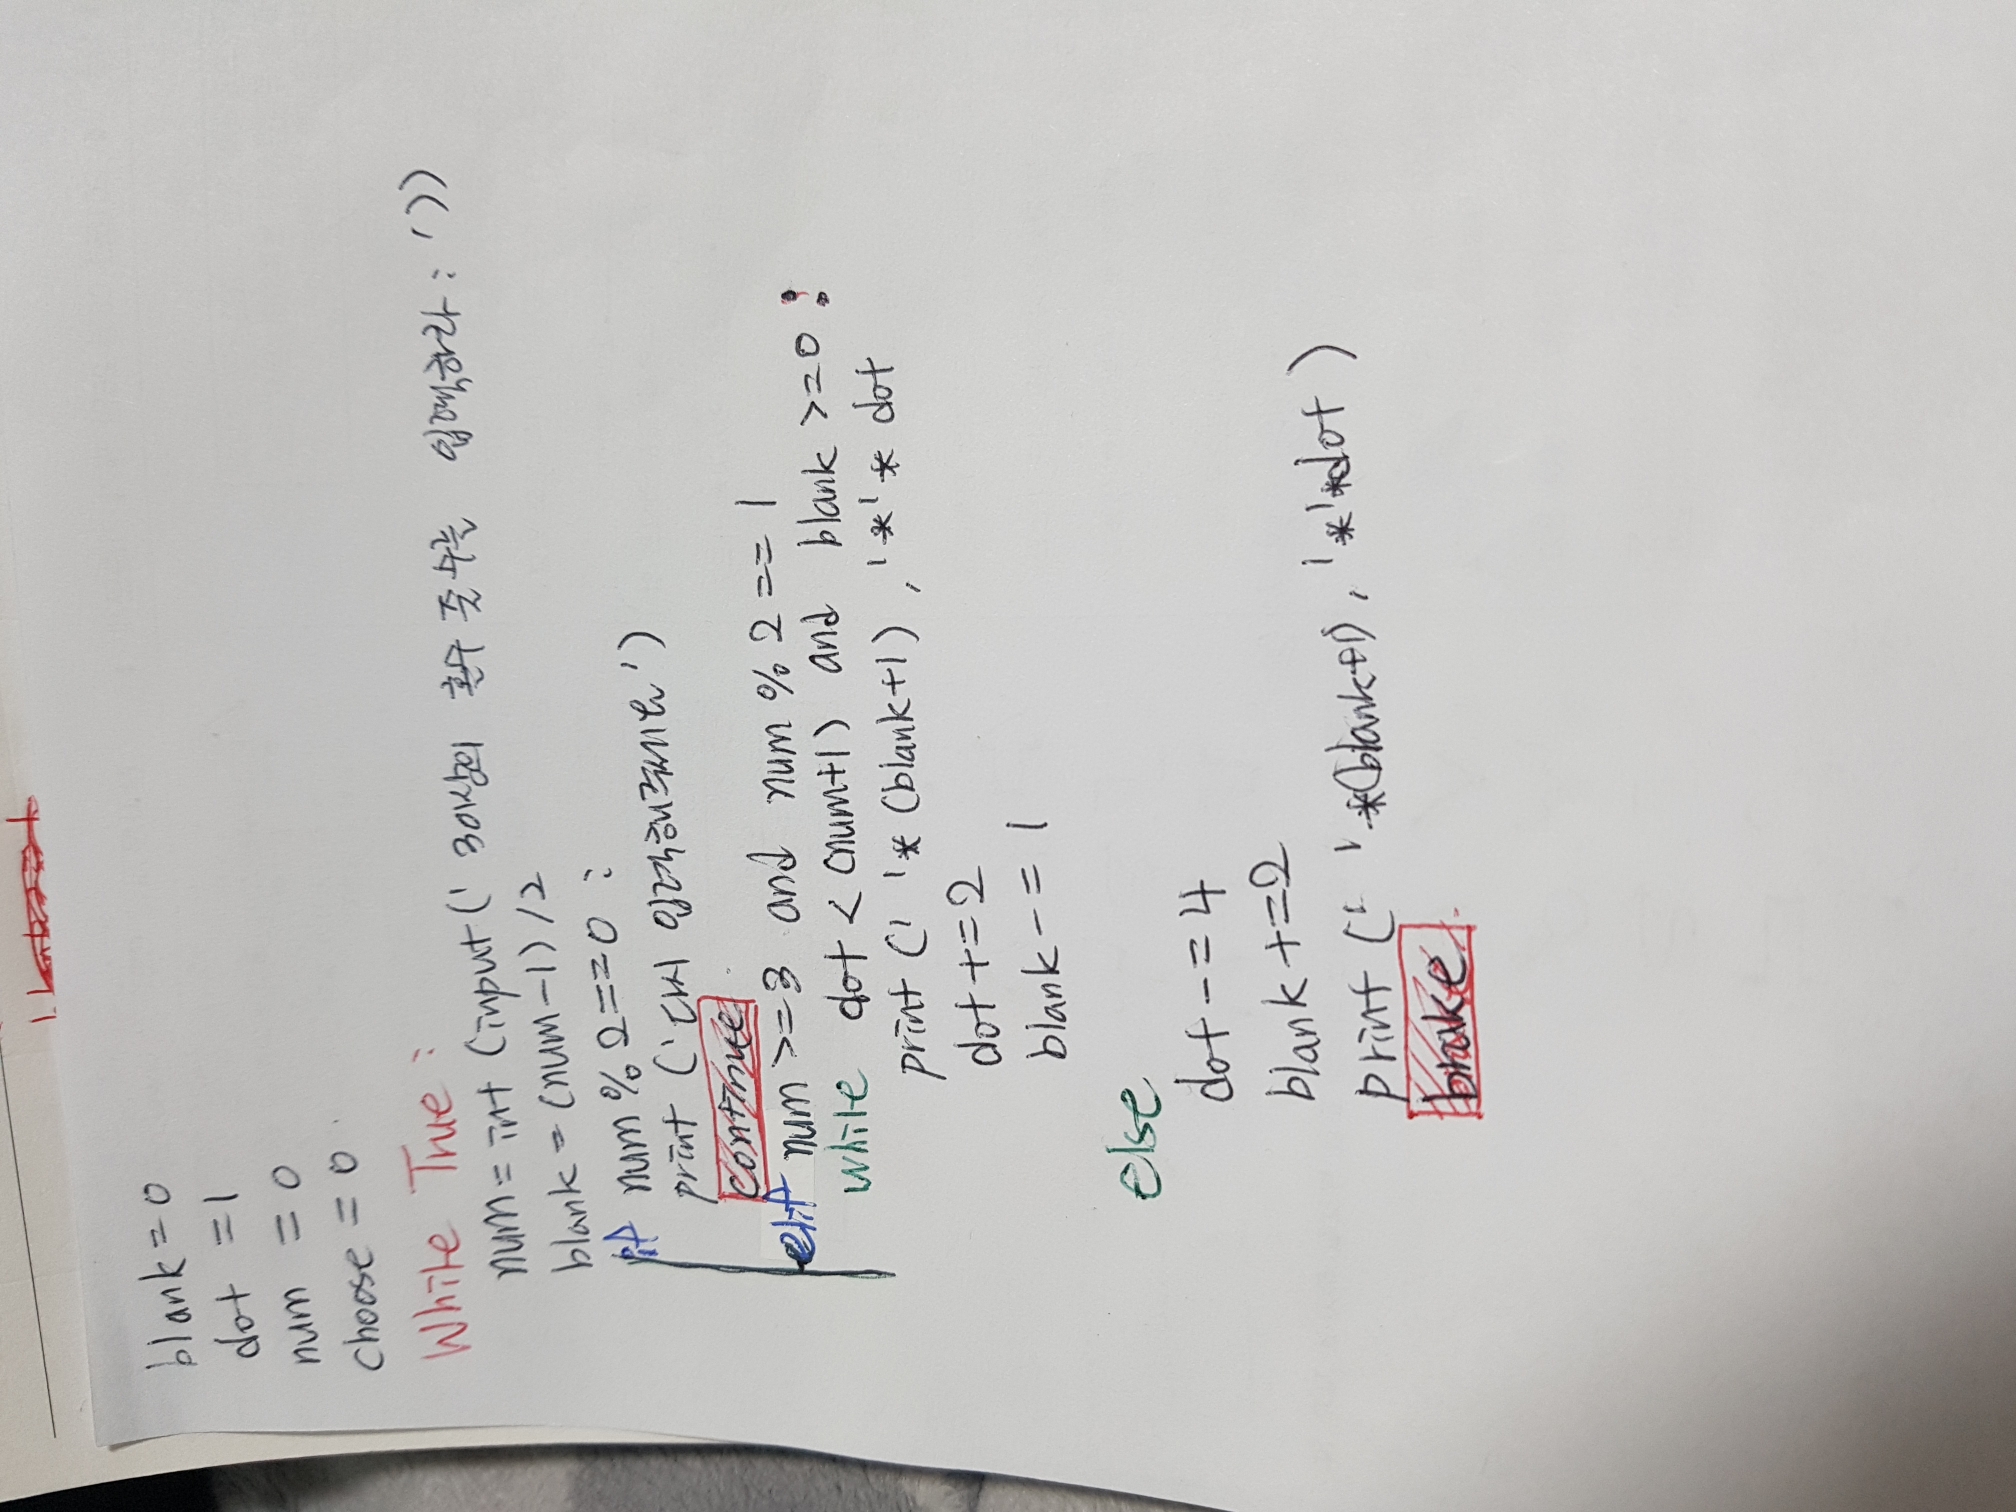 blank = 0
dot = 1
num = 0
choose = 0
While True :
num = int (input (' 3이상의 홀수 줄 수를 입력하라 : '))
blank = (num-1) /2
if num % 2 == 0 :
print (' 다시 입력해주세요 ')
continue
elif num >= 3 and num % 2 == 1
while dot < (num+1) and blank >= 0 :
print (' '* (blank+1) , '*' * dot
dot += 2
blank -= 1
else
dot -= 4
blank += 2
print (' ' *(blank+1) , '*'*dot )
brake